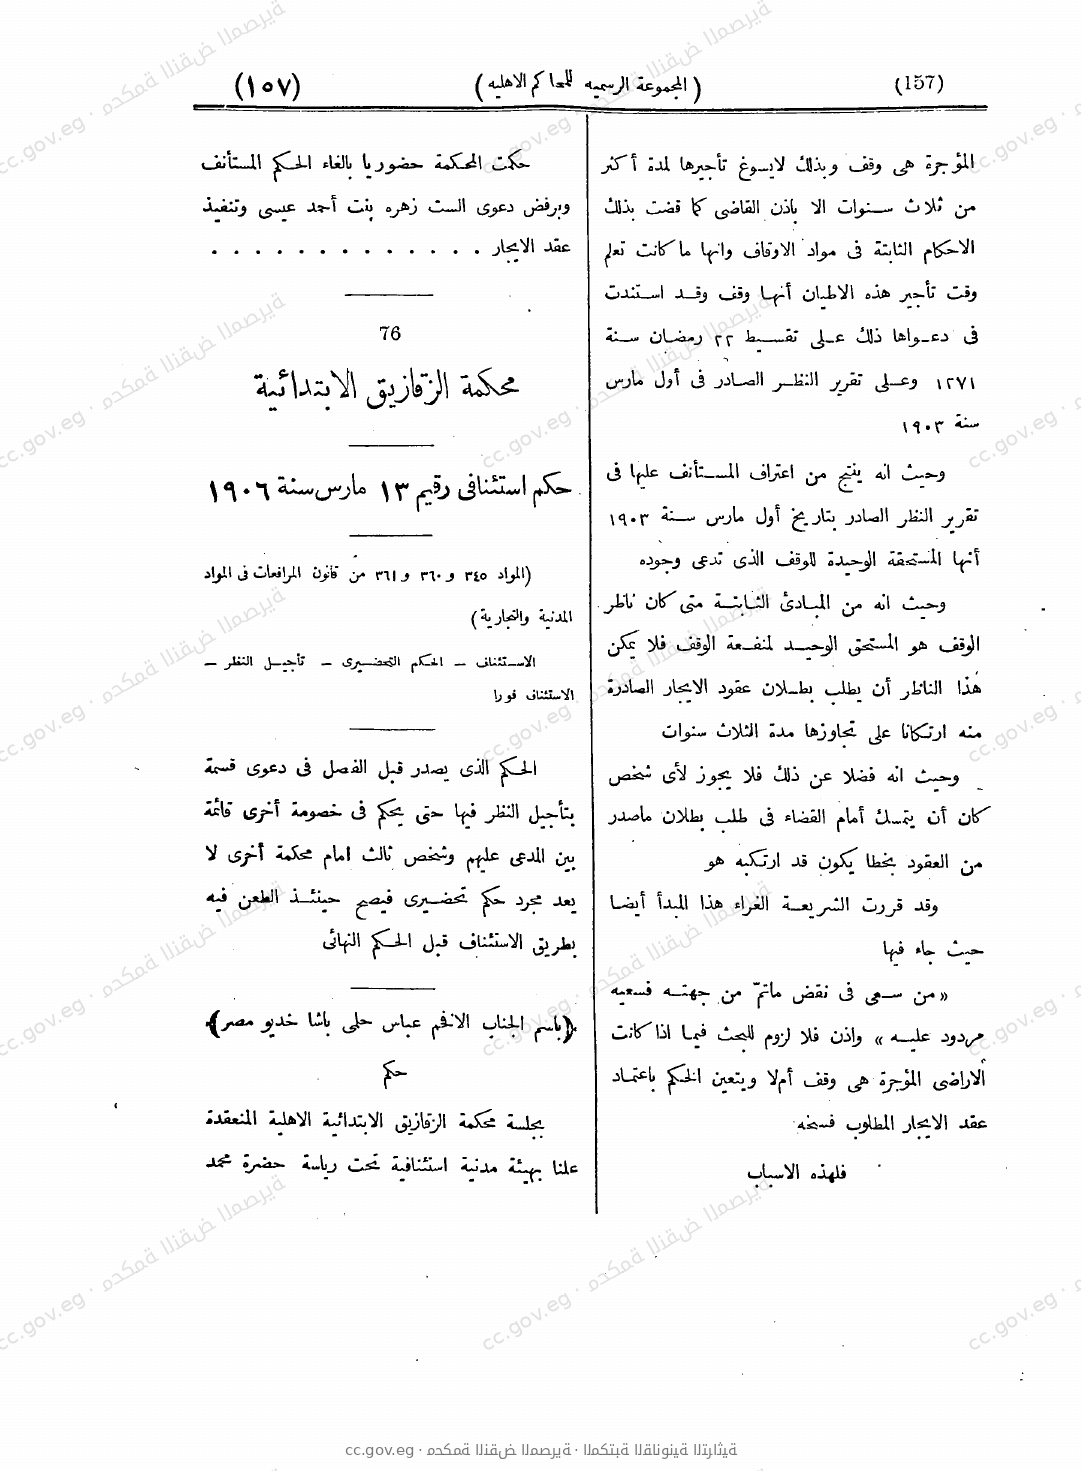 (157)
(المجموعة الرسميه للمحاكم الاهليه)
(١٥٧)
المؤجرة هى وقف وبذلك لايسوغ تأجيرها لمدة أكثر
من ثلاث سنوات الا باذن القاضى كما قضت بذلك
الاحكام الثابتة فى مواد الاوقاف وانها ما كانت تعلم
وقت تأجير هذه الاطيان أنها وقف وقد استندت
فى دعواها ذلك على تقسيط ٢٢ رمضان سنة
١٢٧١ وعلى تقرير النظر الصادر فى أول مارس
سنة ١٩٠٣
وحيث انه ينتج من اعتراف المستأنف عليها فى
تقرير النظر الصادر بتاريخ أول مارس سنة ١٩٠٣
أنها المستحقة الوحيدة للوقف الذى تدعى وجوده
وحيث انه من المبادئ الثابتة متى كان ناظر
الوقف هو المستحق الوحيد لمنفعة الوقف فلا يمكن
هذا الناظر أن يطلب بطلان عقود الايجار الصادرة
منه ارتكانا على تجاوزها مدة الثلاث سنوات
وحيث انه فضلا عن ذلك فلا يجوز لأى شخص
كان أن يتمسك أمام القضاء فى طلب بطلان ماصدر
من العقود بخطا يكون قد ارتكبه هو
وقد قررت الشريعة الغراء هذا المبدأ أيضا
حيث جاء فيها
«من سعى فى نقض ماتم من جهته فسعيه
مردود عليه» واذن فلا لزوم للبحث فيما اذا كانت
الاراضى المؤجرة هى وقف أم لا ويتعين الحكم باعتماد
عقد الايجار المطلوب فسخه
فلهذه الاسباب
حكمت المحكمة حضوريا بالغاء الحكم المستأنف
وبرفض دعوى الست زهره بنت أحمد عيسى وتنفيذ
عقد الايجار . . . . . . . . . . . . .
76
محكمة الزقازيق الابتدائية
حكم استئنافى رقيم ١٣ مارس سنة ١٩٠٦
(المواد ٣٤٥ و ٣٦٠ و ٣٦١ من قانون المرافعات فى المواد
المدنية والتجارية)
الاستئناف – الحكم التحضيرى – تأجيل النظر –
الاستئناف فورا
الحكم الذى يصدر قبل الفصل فى دعوى قسمة
بتأجيل النظر فيها حتى يحكم فى خصومة أخرى قائمة
بين المدعى عليهم وشخص ثالث امام محكمة أخرى لا
يعد مجرد حكم تحضيرى فيصح حينئذ الطعن فيه
بطريق الاستئناف قبل الحكم النهائى
(باسم الجناب الافخم عباس حلمى باشا خديو مصر)
حكم
بجلسة محكمة الزقازيق الابتدائية الاهلية المنعقدة
علنا بهيئة مدنية استئنافية تحت رياسة حضرة محمد
cc.gov.eg · محكمة النقض المصرية · المكتبة القانونية التراثية